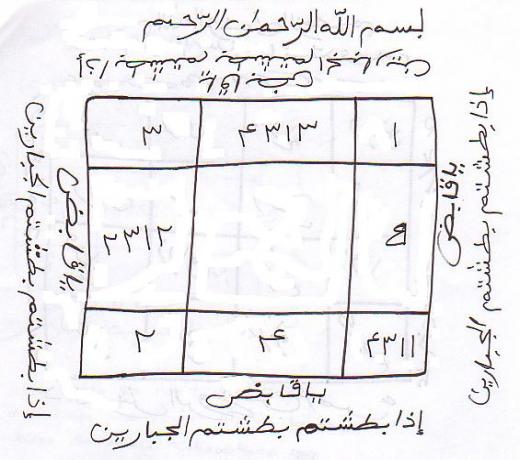 بسم الله الرحمن الرحيم
إذا بطشتم بطشتم الجبارين
يا قابض
١ ٤٣١٣ ٣
٥ ٢٣١٢
٤٣١١ ٤ ٢
يا قابض
إذا بطشتم بطشتم الجبارين
يا قابض
إذا بطشتم بطشتم الجبارين
يا قابض
إذا بطشتم بطشتم الجبارين